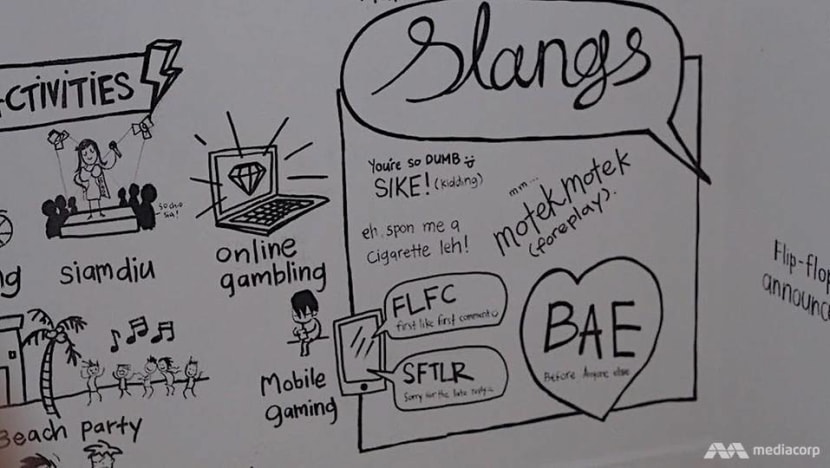 CTIVITIES
siamdiu
online
gambling
Mobile
gaming
Beach party
Slangs
You're so DUMB
SIKE! (kidding)
eh spon me a
Cigarette leh!
mm...
motek motek
(foreplay).
FLFC
first like first comment
SFTLR
Sorry for the late reply
BAE
Before Anyone else
Flip-flop
announc
mediacorp